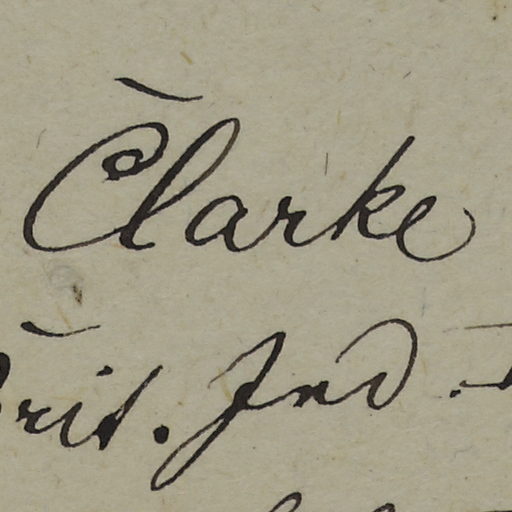 Clarke
Brit. Ind.